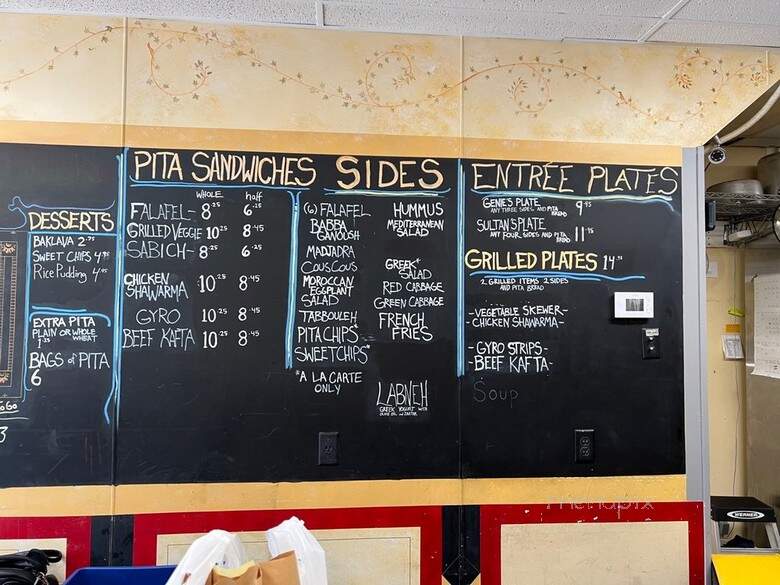 DESSERTS
BAKLAVA 2.75
SWEET CHIPS 4.95
Rice Pudding 4.95
EXTRA PITA
PLAIN OR WHOLE
1.25 WHEAT
BAGS of PITA
6
TO GO
3
PITA SANDWICHES
WHOLE half
FALAFEL- 8.25 6.25
GRILLED VEGGIE 10.25 8.45
SABICH- 8.25 6.25
CHICKEN
SHAWARMA 10.25 8.45
GYRO 10.25 8.45
BEEF KAFTA 10.25 8.45
SIDES
(6) FALAFEL
BABBA
GANOUSH
MADJADRA
COUSCOUS
MOROCCAN
EGGPLANT
SALAD
TABBOULEH
PITA CHIPS*
SWEET CHIPS*
*A LA CARTE
ONLY
HUMMUS
MEDITERRANEAN
SALAD
GREEK*
SALAD
RED CABBAGE
GREEN CABBAGE
FRENCH
FRIES
LABNEH
GREEK YOGURT WITH
OLIVE OIL and ZAATAR
ENTRÉE PLATES
GENIES PLATE 9.95
ANY THREE SIDES AND PITA
BREAD
SULTANS PLATE 11.95
ANY FOUR SIDES AND PITA
BREAD
GRILLED PLATES 14.95
2 GRILLED ITEMS 2 SIDES
AND PITA BREAD
-VEGETABLE SKEWER-
-CHICKEN SHAWARMA-
-GYRO STRIPS-
-BEEF KAFTA-
Soup
menupix
WERNER